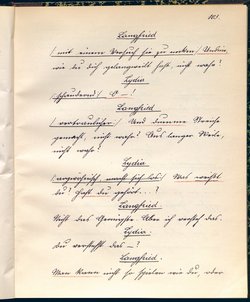 101.
Langfried
(mit einem Versuch sie zu necken) Undine,
wie du dich gelangweilt hast, nicht wahr?
Lydia
(schaudernd) O —!
Langfried
(vertraulicher) Und dumme Streiche
gemacht, nicht wahr? Aus langer Weile,
nicht wahr?
Lydia
macht sich los) Was weißt
du? Hast du gehört...?
Langfried
Nicht das Geringste. Aber ich versteh das.
Lydia.
Du verstehst das —?
Langfried.
Man kann nicht so spielen wie du, oder